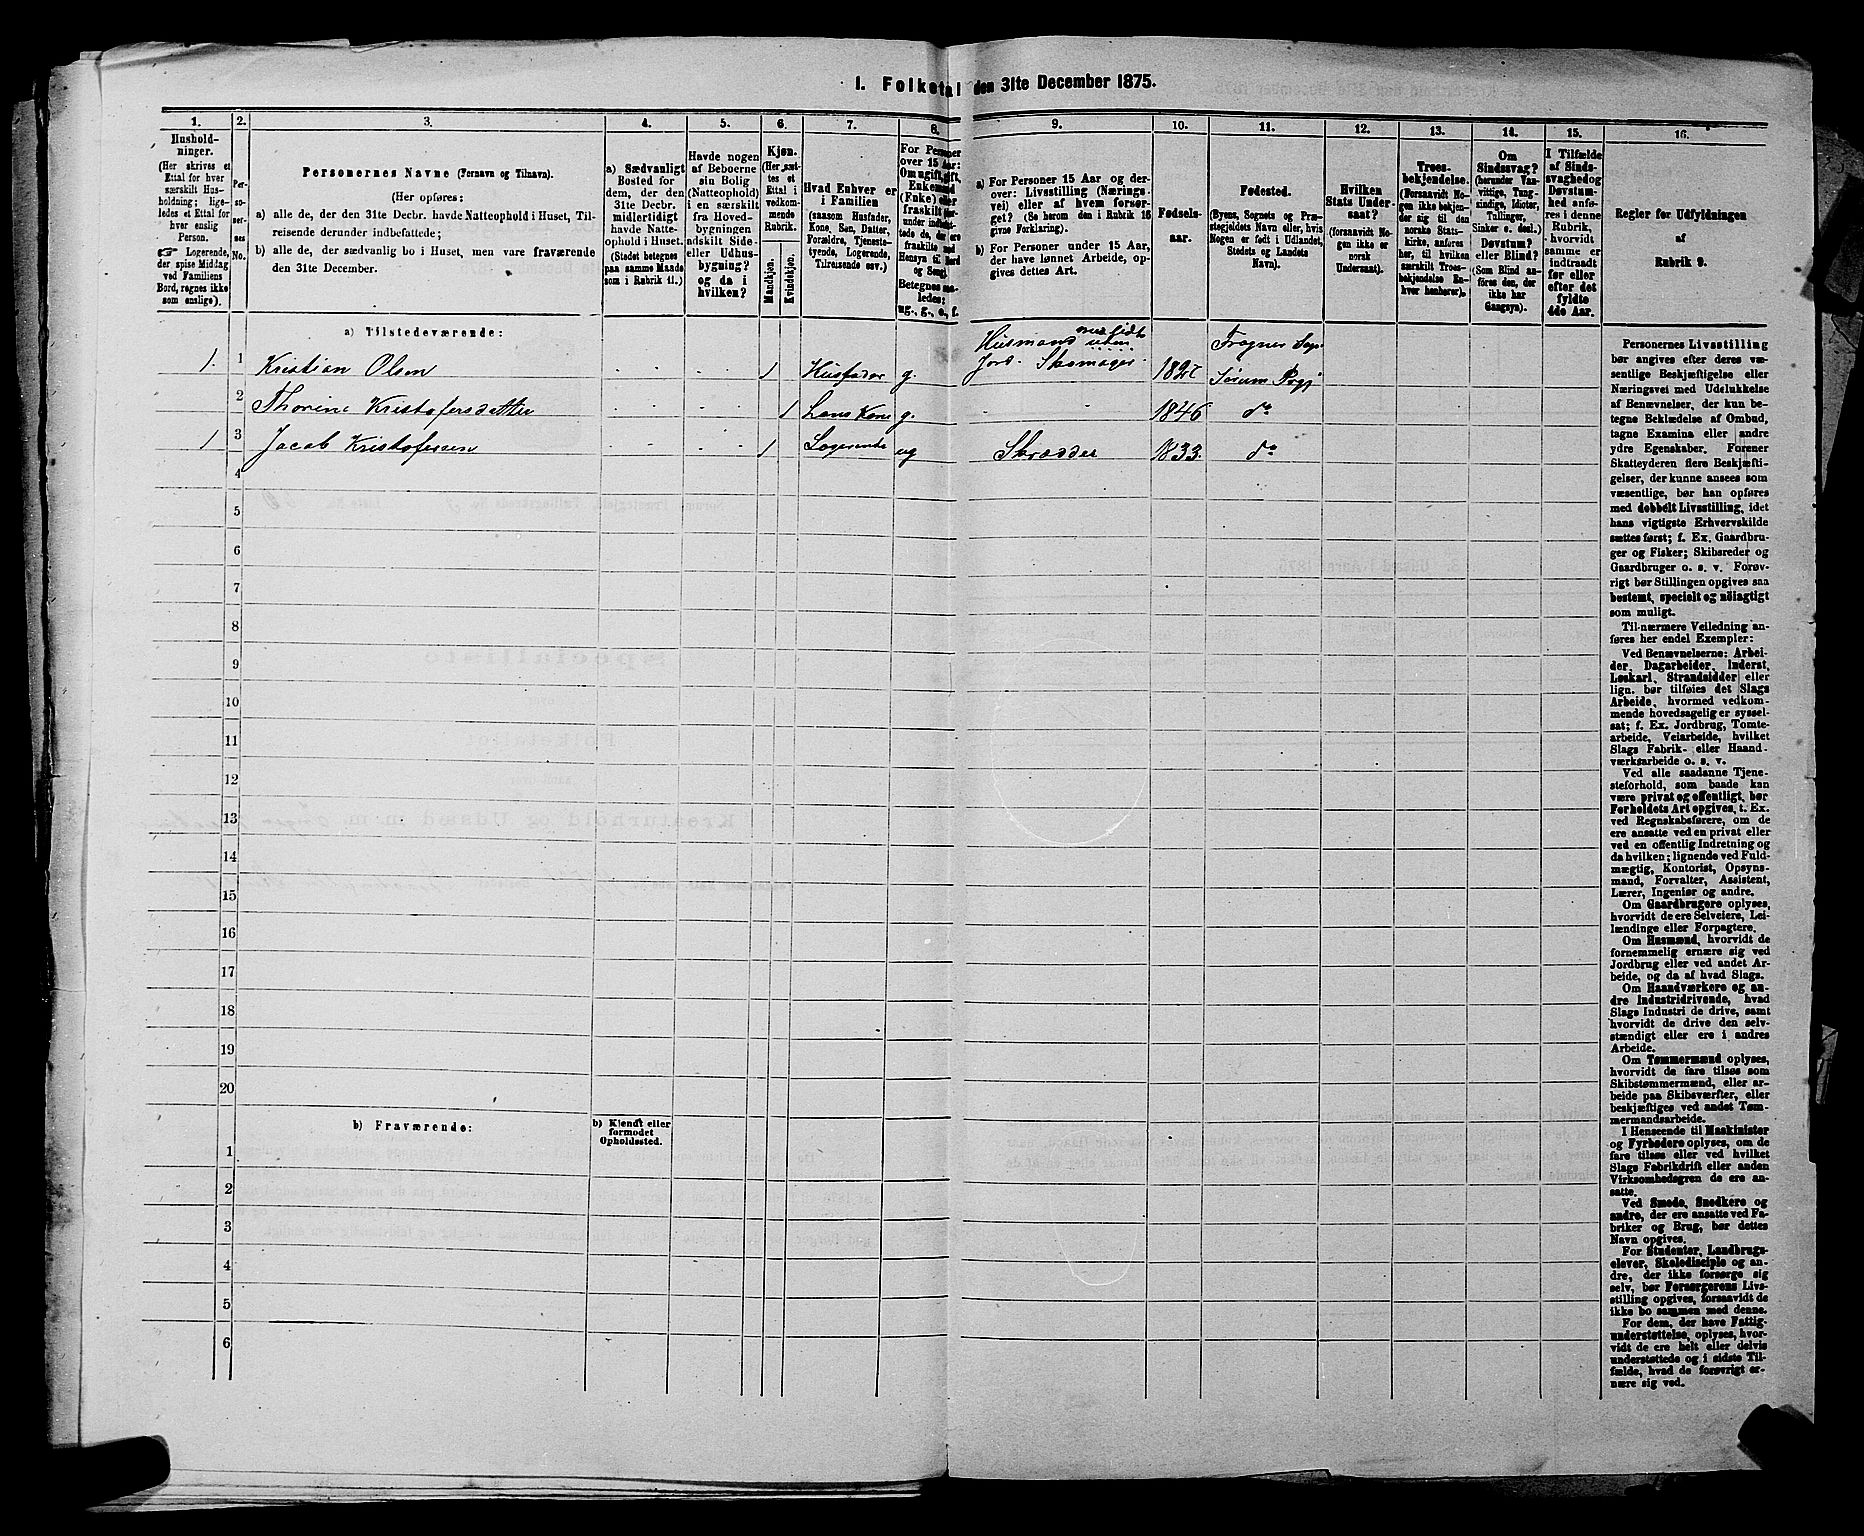 I. Folketal den 31te December 1875.
1.
Hushold-
ninger.
(Her skrives et
Ettal for hver
særskilt Hus-
holdning; lige-
ledes et Ettal for
hver enslig
Person.
☞ Logerende,
der spise Middag
ved Familiens
Bord, regnes ikke
som enslige).
2.
Per-
so-
ner-
nes
No.
3.
Personernes Navne (Fornavn og Tilnavn).
(Her opføres:
a) alle de, der den 31te Decbr. havde Natteophold i Huset, Til-
reisende derunder indbefattede;
b) alle de, der sædvanlig bo i Huset, men vare fraværende
den 31te December.
4.
a) Sædvanligt
Bosted for
dem, der den
31te Decbr.
midlertidigt
havde Natte-
ophold i Huset.
(Stedet betegnes
paa samme Maade
som i Rubrik 11.)
5.
Havde nogen
af Beboerne
sin Bolig
(Natteophold)
i en særskilt
fra Hoved-
bygningen
adskilt Side-
eller Udhus-
bygning?
og da i
hvilken?
6.
Kjøn.
(Her sæt-
tes et
Ettal i
vedkom-
mende
Rubrik.
Mandkjøn.
Kvindekjøn.
7.
Hvad Enhver er
i Familien
(saasom Husfader,
Kone, Søn, Datter,
Forældre, Tjeneste-
tyende, Logerende,
Tilreisende osv.)
8.
For Personer
over 15 Aar:
Om ugift, gift,
Enkemand
(Enke) eller
fraskilt
Betegnes saa-
ledes:
ug., g., e., f.
9.
a) For Personer 15 Aar og der-
over: Livsstilling (Nærings-
vei) eller af hvem forsør-
get? (Se herom den i Rubrik 16
givne Forklaring).
b) For Personer under 15 Aar,
der have lønnet Arbeide, op-
gives dettes Art.
10.
Fødsels-
aar.
11.
Fødested.
(Byens, Sognets og Præ-
stegjeldets Navn eller, hvis
Nogen er født i Udlandet,
Stedets og Landets
Navn).
12.
Hvilken
Stats Under-
saat?
(forsaavidt No-
gen ikke er
norsk
Undersaat).
13.
Troes-
bekjendelse.
(Forsaavidt No-
gen ikke bekjen-
der sig til den
norske Stats-
kirke, anføres
her, til hvilken
særskilt Troes-
bekjendelse En-
hver henhører).
14.
Om
Sindssvag?
(herunder Van-
vittige, Tung-
sindige, Idioter,
Tullinger,
Sinker o. desl.)
Døvstum?
eller Blind?
(Som Blind an-
føres den, der
ikke har
Gangsyn).
15.
I Tilfælde
af Sinds-
svaghed og
Døvstum-
hed anfø-
res i denne
Rubrik,
hvorvidt
samme er
indtraadt
før eller
efter det
fyldte
4de Aar.
16.
Regler for Udfyldningen
af
Rubrik 9.
a) Tilstedeværende:
1. 1 Kristian Olsen - - 1 Husfader g. Husmand uden Jord. Skomager. Frogner Sogn Sørum Prgj
2 Thorine Kristofersdatter - - 1 Hans Kone g. - 1846 do
1 3 Jacob Kristofersen - - 1 Logerende ug Skrædder 1833. do
4
5
6
7
8
9
10
11
12
13
14
15
16
17
18
19
20
b) Fraværende:
b) Kjendt eller
formodet
Opholdssted.
1
2
3
4
5
6
Personernes Livsstilling
bør angives efter deres væ-
sentlige Beskjæftigelse eller
Næringsvei med Udelukkelse
af Benævnelser, der kun be-
tegne Beklædelse af Ombud,
tagne Examina eller andre
ydre Egenskaber. Forener
Skatteyderen flere Beskjæfti-
gelser, der kunne ansees som
væsentlige, bør han opføres
med dobbelt Livsstilling, idet
hans vigtigste Erhvervskilde
sættes først; f. Ex. Gaardbru-
ger og Fisker; Skibsreder og
Gaardbruger o. s. v. Forøv-
rigt bør Stillingen opgives saa
bestemt, specielt og nöiagtigt
som muligt.
Til nærmere Veiledning an-
føres her endel Exempler:
Ved Benævnelserne: Arbei-
der, Dagarbeider, Inderst,
Løskarl, Strandsidder eller
lign. bør tilføies det Slags
Arbeide, hvormed vedkom-
mende hovedsagelig er syssel-
sat; f. Ex. Jordbrug, Tomte-
arbeide, Veiarbeide, hvilket
Slags Fabrik- eller Haand-
værksarbeide o. s. v.
Ved alle saadanne Tjene-
steforhold, som baade kan
være privat og offentligt, bør
Forholdets Art opgives, t. Ex.
ved Regnskabsførere, om de
ere ansatte ved en privat eller
ved en offentlig Indretning og
da hvilken; lignende ved Fuld-
mægtig, Kontorist, Opsyns-
mand, Forvalter, Assistent,
Lærer, Ingeniør og andre.
Om Gaardbrugere oplyses,
hvorvidt de ere Selveiere, Lei-
lændinge eller Forpagtere.
Om Husmænd, hvorvidt de
fornemmelig ernære sig ved
Jordbrug eller ved andet Ar-
beide, og da af hvad Slags.
Om Haandværkere og an-
dre Industridrivende, hvad
Slags Industri de drive, samt
hvorvidt de drive den selv-
stændigt eller ere i andres
Arbeide.
Om Tømmermænd oplyses,
hvorvidt de fare tilsøs som
Skibstømmermænd, eller ar-
beide paa Skibsværfter, eller
beskjæftiges ved andet Tøm-
mermandsarbeide.
I Henseende til Maskinister
og Fyrbødere oplyses, om de
fare tilsøs eller ved hvilket
Slags Fabrikdrift eller anden
Virksomhedsgren de ere an-
satte.
Ved Smede, Snedkere og
andre, der ere ansatte ved Fa-
briker og Brug, bør dettes
Navn opgives.
For Studenter, Landbrugs-
elever, Skoledisciple og an-
dre, der ikke forsørge sig
selv, bør Forsørgerens Livs-
stilling opgives, forsaavidt de
ikke bo sammen med denne.
For dem, der have Fattig-
understøttelse, oplyses, hvor-
vidt de ere helt eller delvis
understøttede og i sidste Til-
fælde, hvad de forøvrigt er-
nære sig ved.